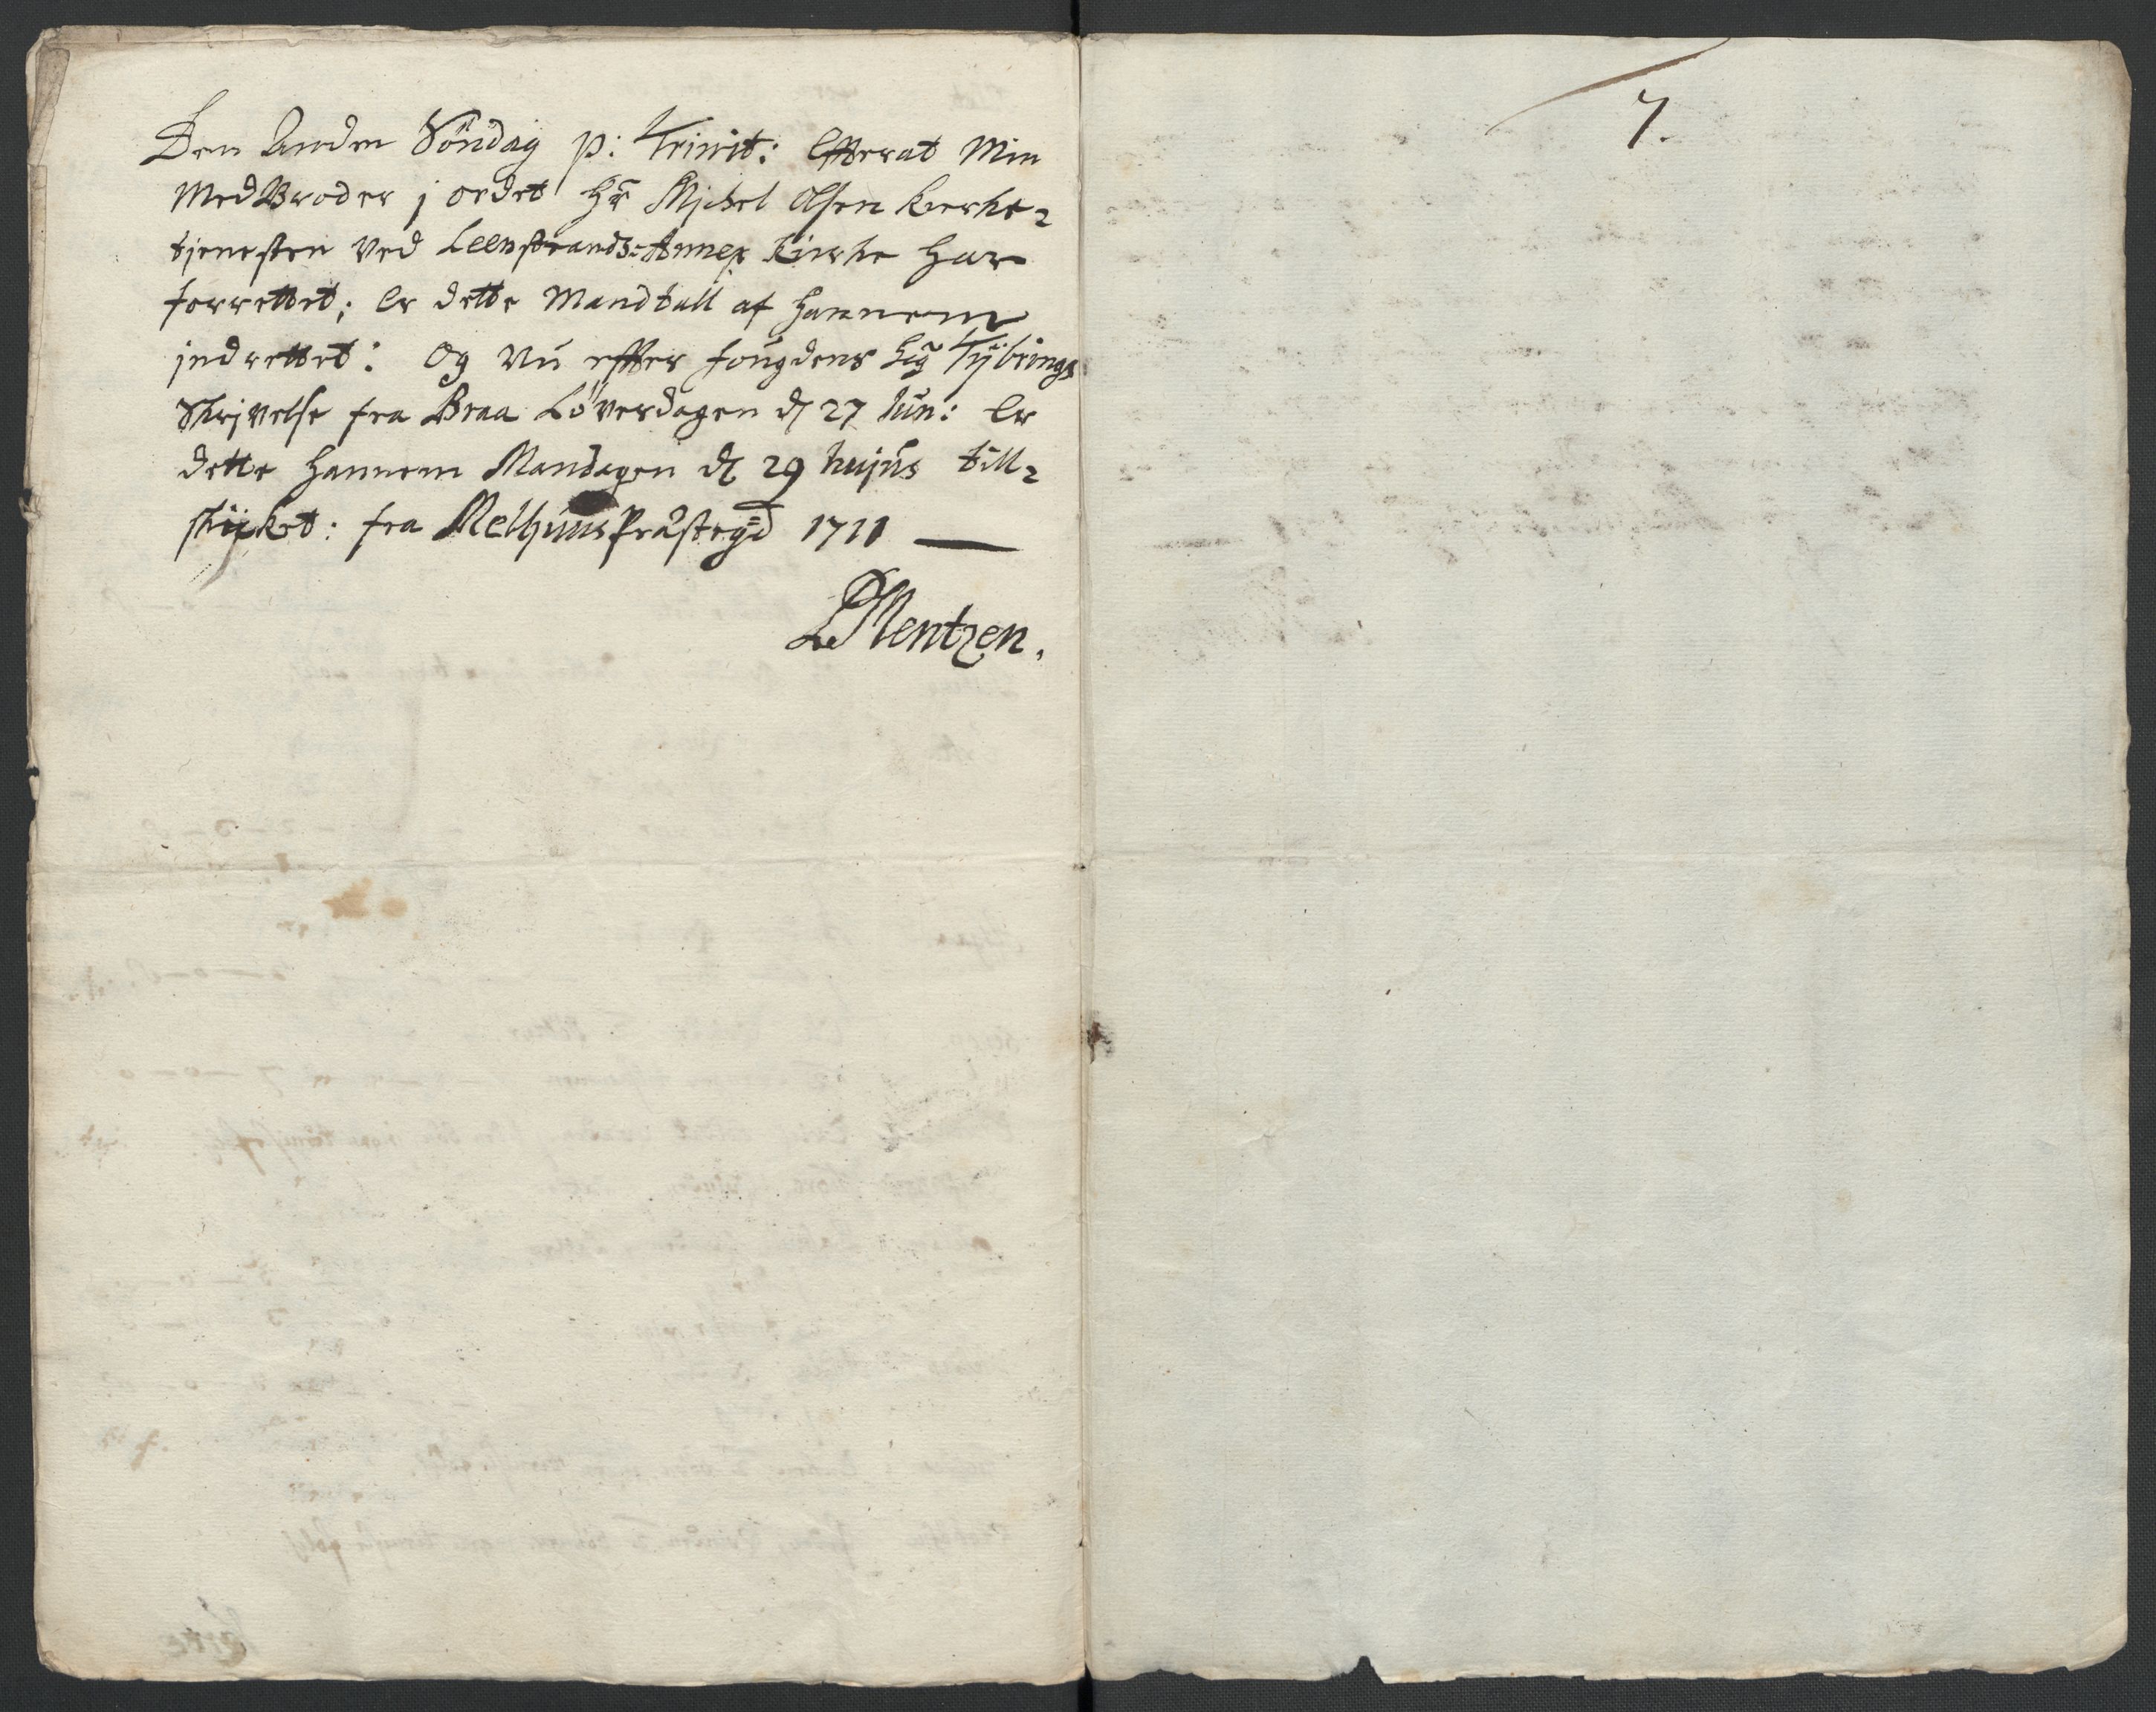 Den Anden Söndag p: Trinit: Efterat Min
MedBroder j ordet Hr Mjchel Olsen kierke-
tjenesten ved Leenstrands-Annex Kircke har
forrettet; Er dette Mandtall af hannem
jndrettet: Og Nu efter fougdens Sig Tÿbrings
Skrivelse fra Braa Löverdagen d 27 Iun: Er
dette hannem Mandagen d 29 hujus till-
skicket: fra Melhuus Præstegd 1711
LMentzen.
7.